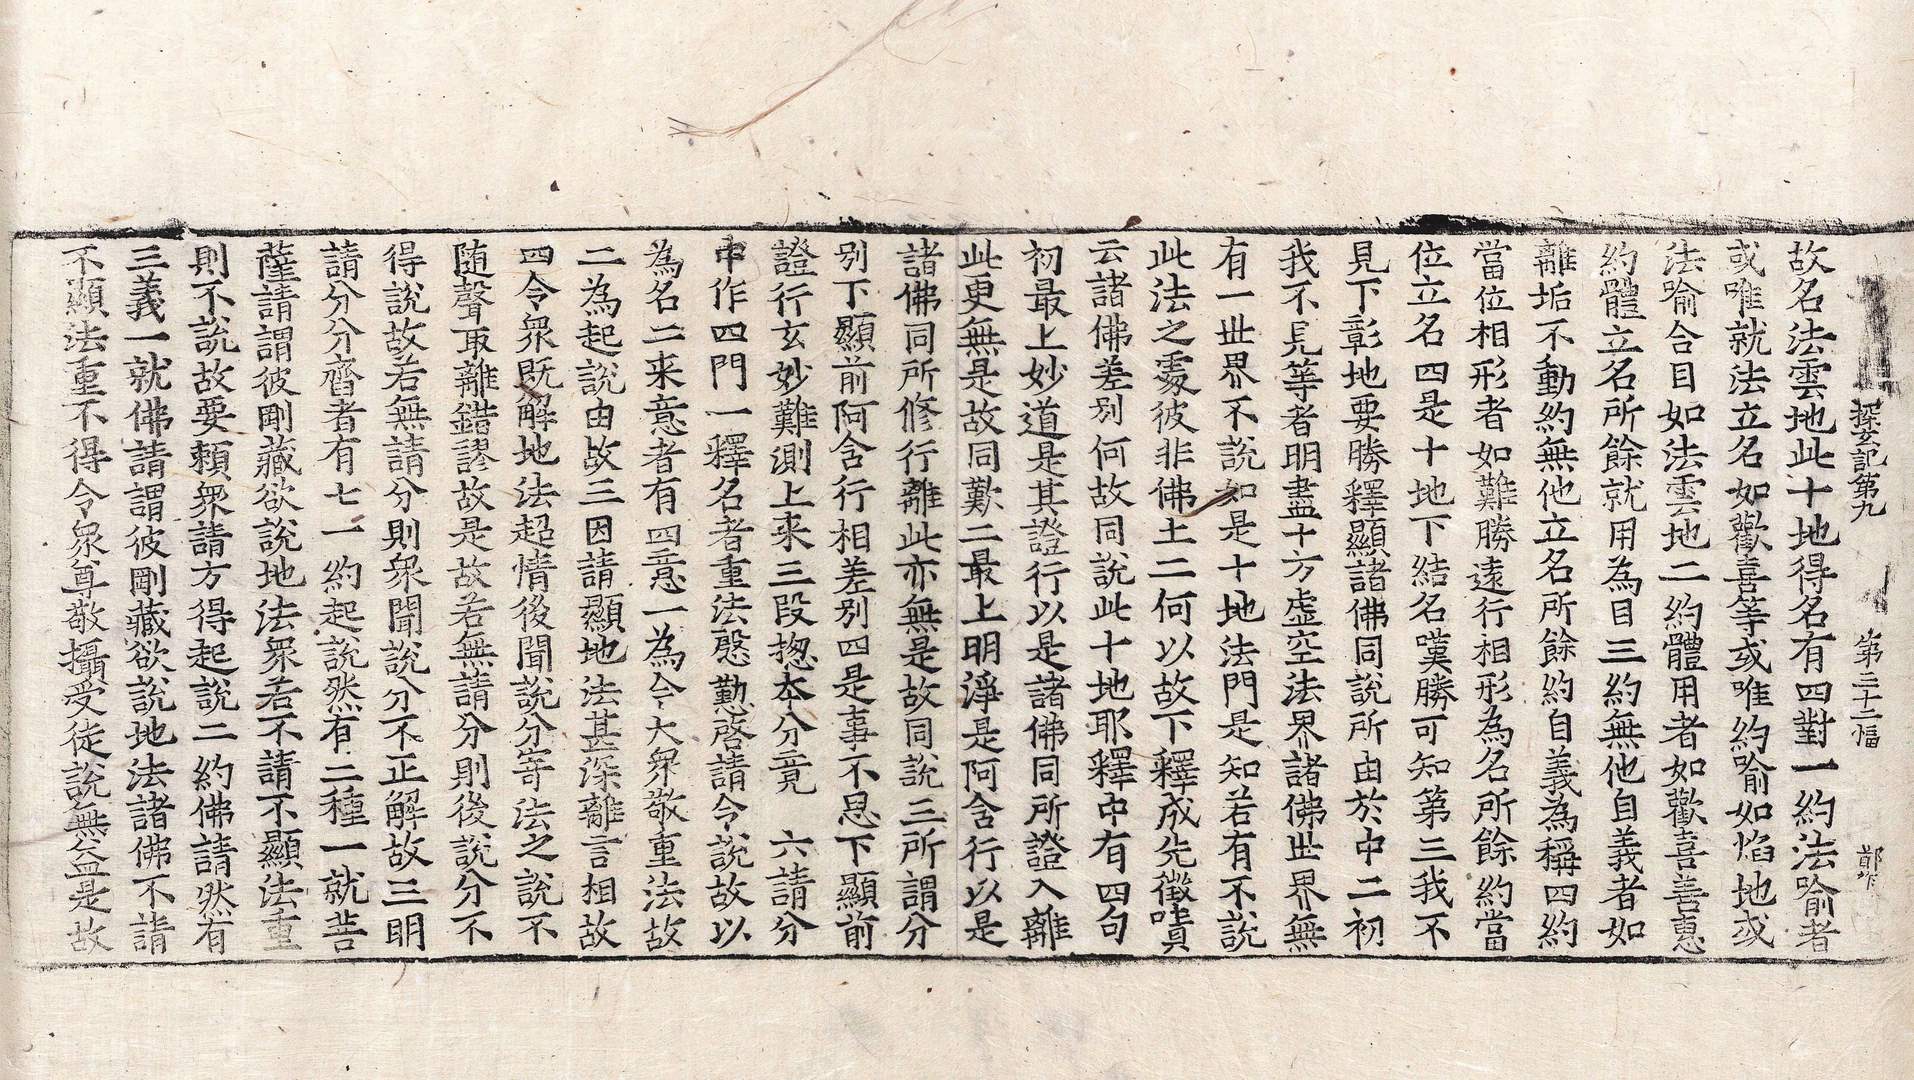 探玄記第九 第三十二幅 鄭
故名法雲地此十地得名有四對一約法喻者
或唯就法立名如歡喜等或唯約喻如焰地或
法喻合目如法雲地二約體用者如歡喜善惠
約體立名所餘就用為目三約無他自義者如
離垢不動約無他立名所餘約自義為稱四約
當位相形者如難勝遠行相形為名所餘約當
位立名四是十地下結名嘆勝可知第三我不
見下彰地要勝釋顯諸佛同說所由於中二初
我不見等者明盡十方虛空法界諸佛世界無
有一世界不說如是十地法門是知若有不說
此法之處彼非佛土二何以故下釋成先徵嘖
云諸佛差別何故同說此十地耶釋中有四句
初最上妙道是其證行以是諸佛同所證入離
此更無是故同歎二最上明淨是阿含行以是
諸佛同所修行離此亦無是故同說三所謂分
別下顯前阿含行相差別四是事不思下顯前
證行玄妙難測上来三段揔本分竟 六請分
中作四門一釋名者重法慇懃啓請令說故以
為名二来意者有四意一為令大衆敬重法故
二為起說由故三因請顯地法甚深離言相故
四令衆既解地法超情後聞說分寄法之說不
随聲取離錯謬故是故若無請分則後說分不
得說故若無請分則衆聞說分不正解故三明
請分分齊者有七一約起說然有二種一就菩
薩請謂彼剛藏欲說地法衆若不請不顯法重
則不說故要賴衆請方得起說二約佛請然有
三義一就佛請謂彼剛藏欲說地法諸佛不請
不顯法重不得令衆尊敬攝受徒說無益是故